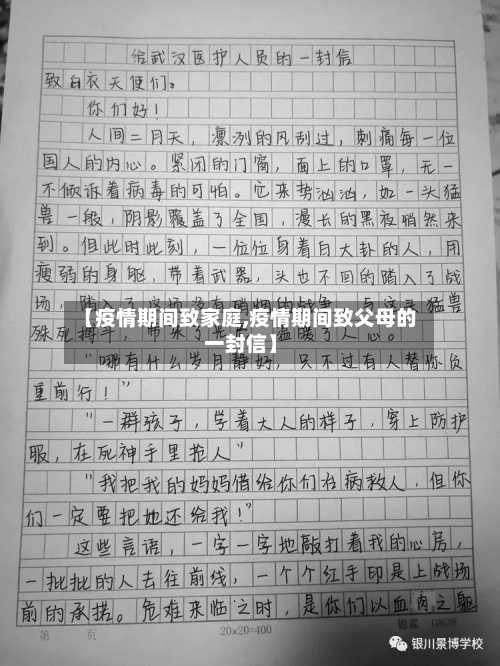 给武汉医护人员的一封信
致白衣天使们。
你们好！
人间二月天，凛冽的风刮过，刺痛每一位
国人的内心。紧闭的门窗，面上的口罩，无一
不倾诉着病毒的可怕。它来势汹汹，如一头猛
兽一般，阴影覆盖了全国，漫长的黑夜悄然来
到。但此时此刻，一位位身着白大卦的人，用
瘦弱的身躯，带着武器，头也不回的踏入了战
场，踏入了这场没有硝烟的战争，与这头猛兽
殊死搏斗，带来了光
温暖了人心。
【疫情期间致家庭,疫情期间致父母的
一封信】
“哪有什么岁月静好，只不过有人替你负
重前行！”
“一群孩子，学着大人的样子，穿上防护
服，在死神手里抢人”
“我把我的妈妈借给你们治病救人，但你
们一定要把她还给我！”
这些言语，一字一字地敲打着我的心房，
一批批的人去往前线，一个个红手印是上战场
前的承诺。危难来临之时，是你们以血肉之躯
第 页
20×20=400
锦霖 10638
银川景博学校